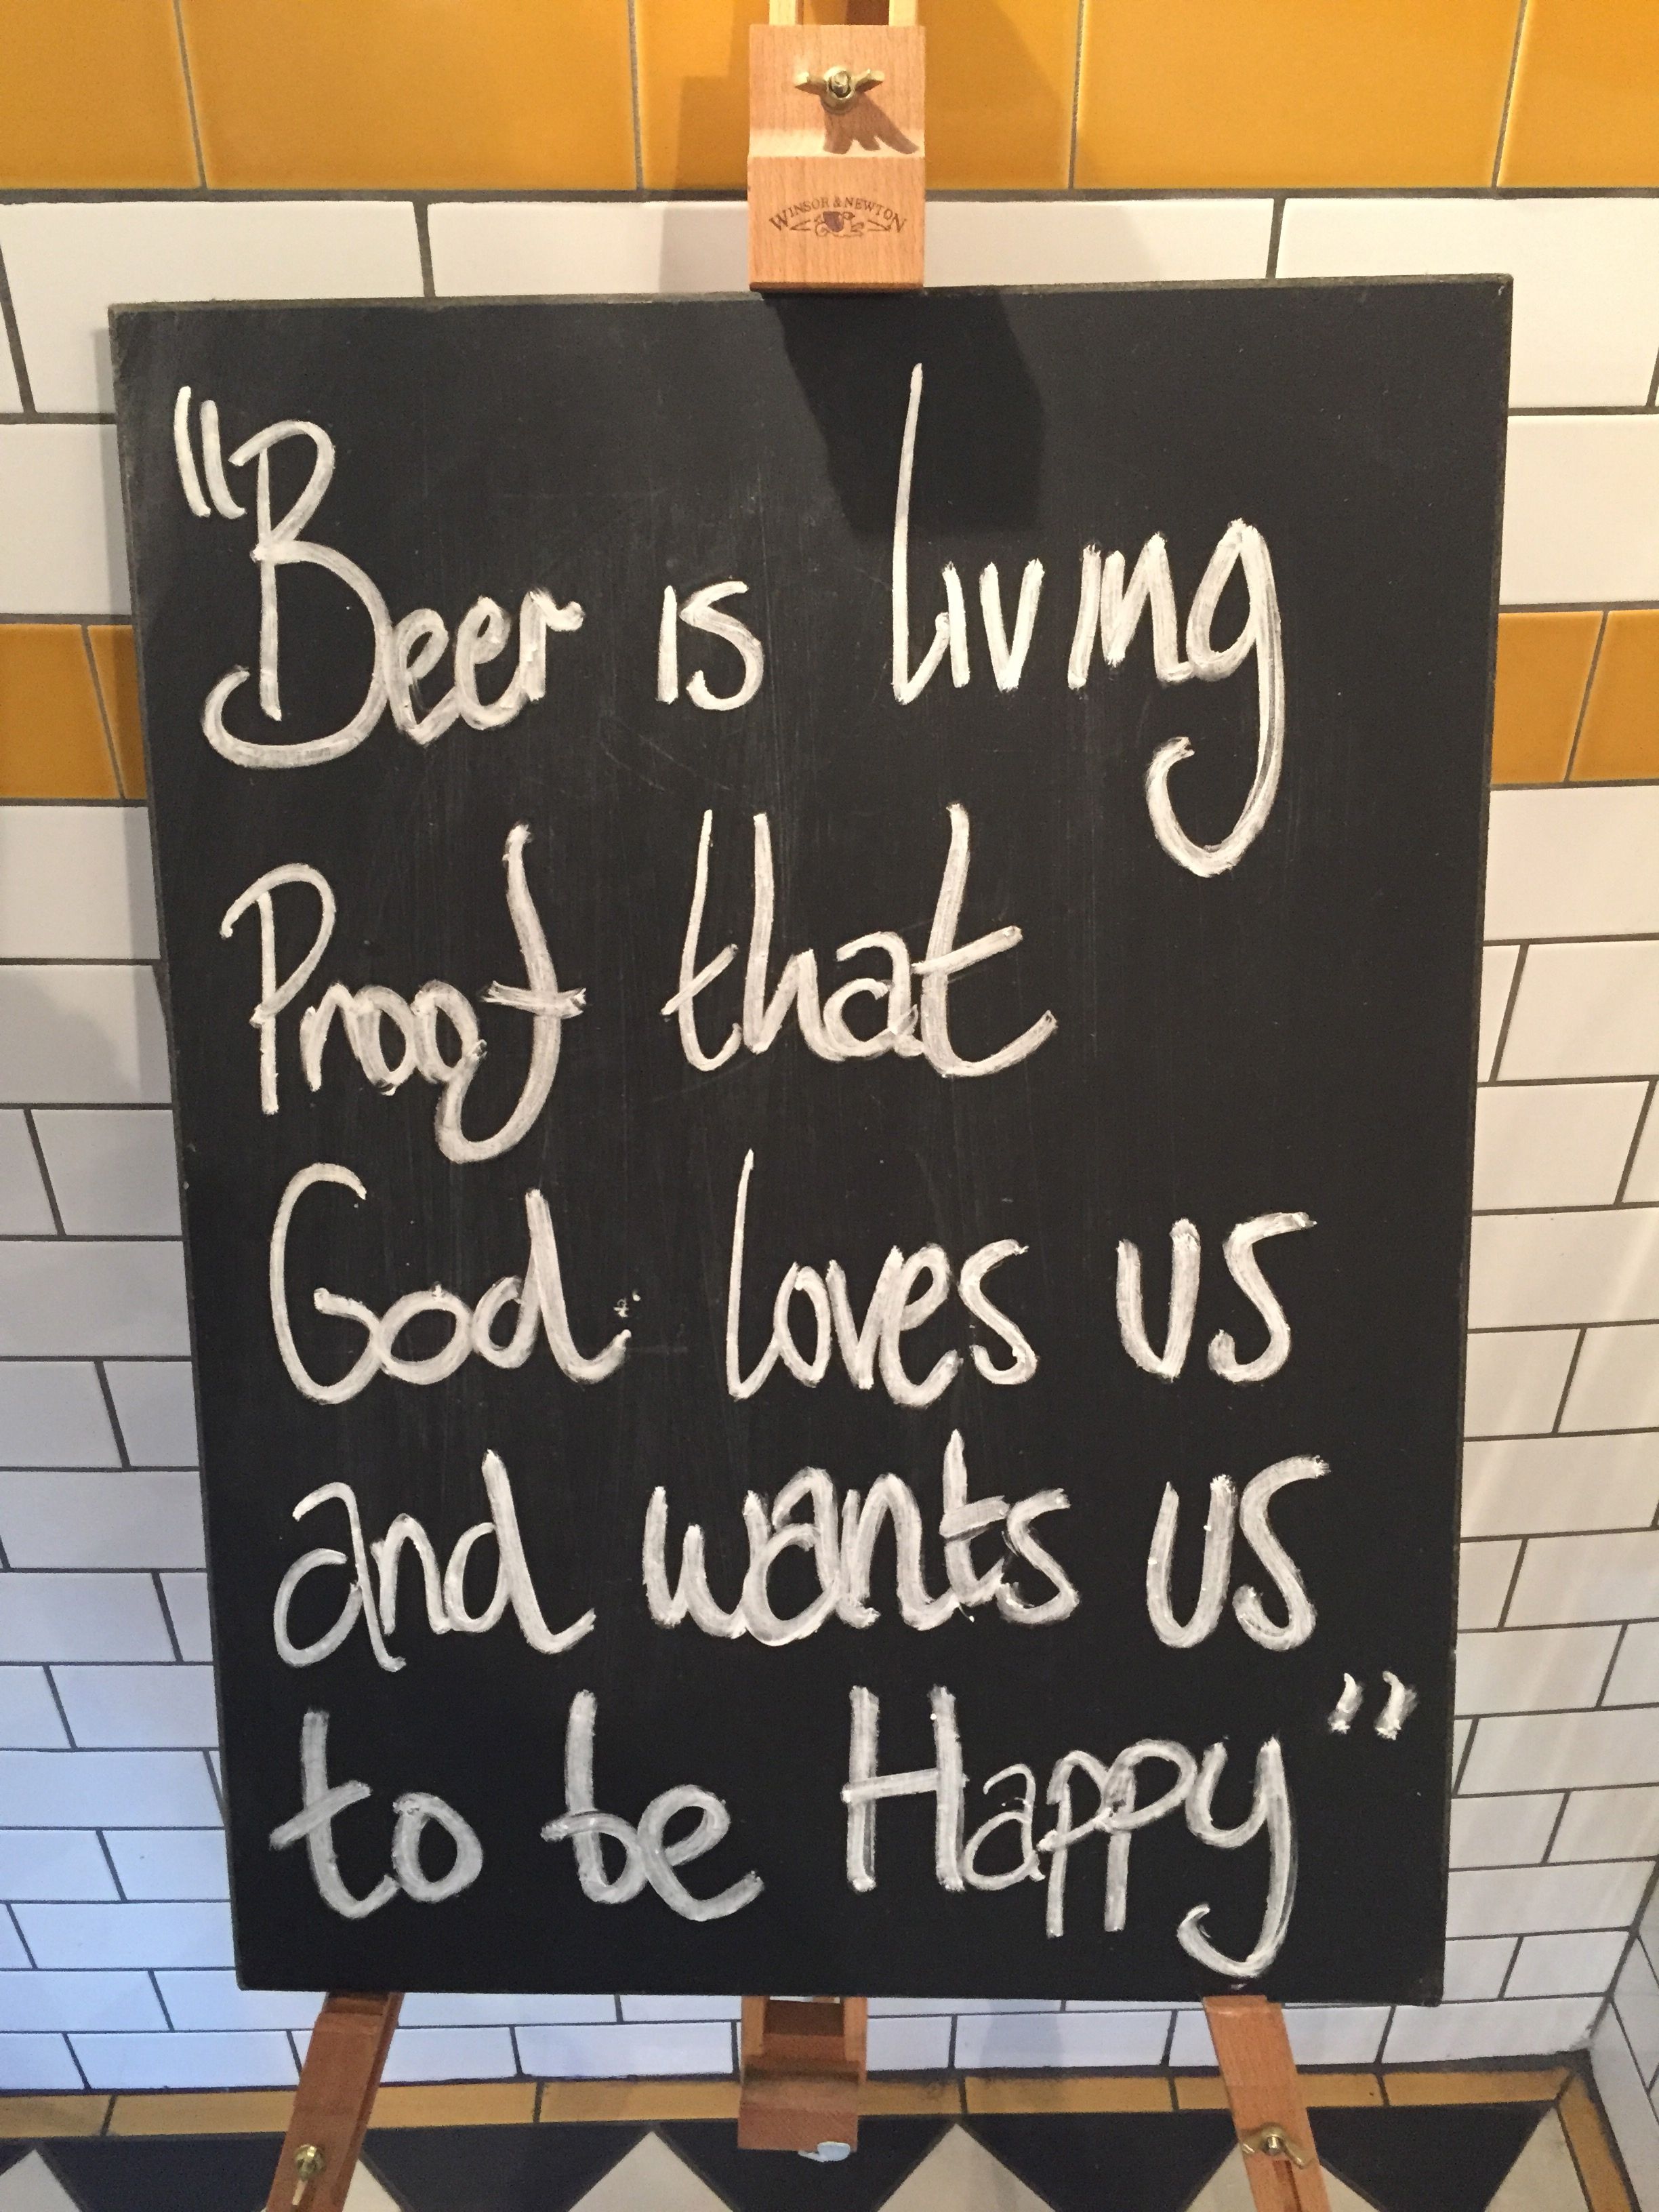 WINSOR & NEWTON
"Beer is living
Proof that
God loves us
and wants us
to be Happy"